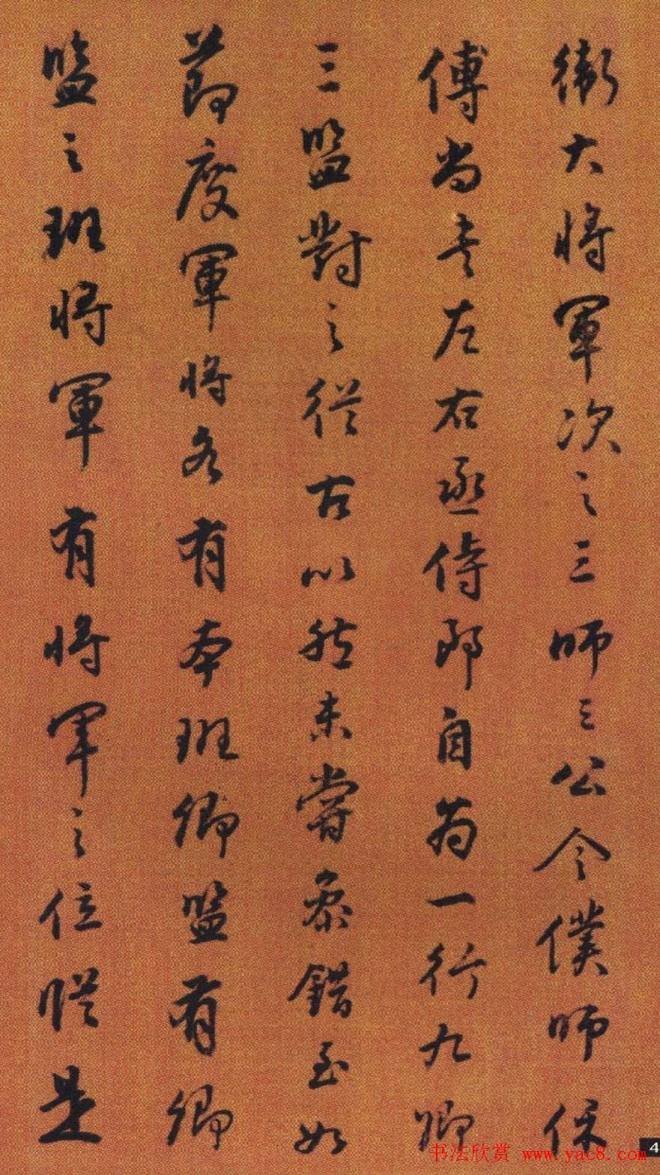 衛大将軍次之三師三公令僕師保
傅尚書左右丞侍郎自為一行九卿
三監對之從古以然未嘗參錯至如
節度軍将各有本班卿監有卿
監之班将軍有将軍之位縱是
书法欣赏 www.yac8.com
4